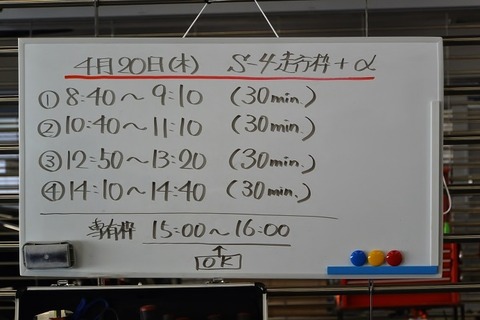 4月20日(木) S-4走行枠+α
①8:40～9:10 (30min.)
②10:40～11:10 (30min.)
③12:50～13:20 (30min.)
④14:10～14:40 (30min.)
専有枠 15:00～16:00
↑
OK